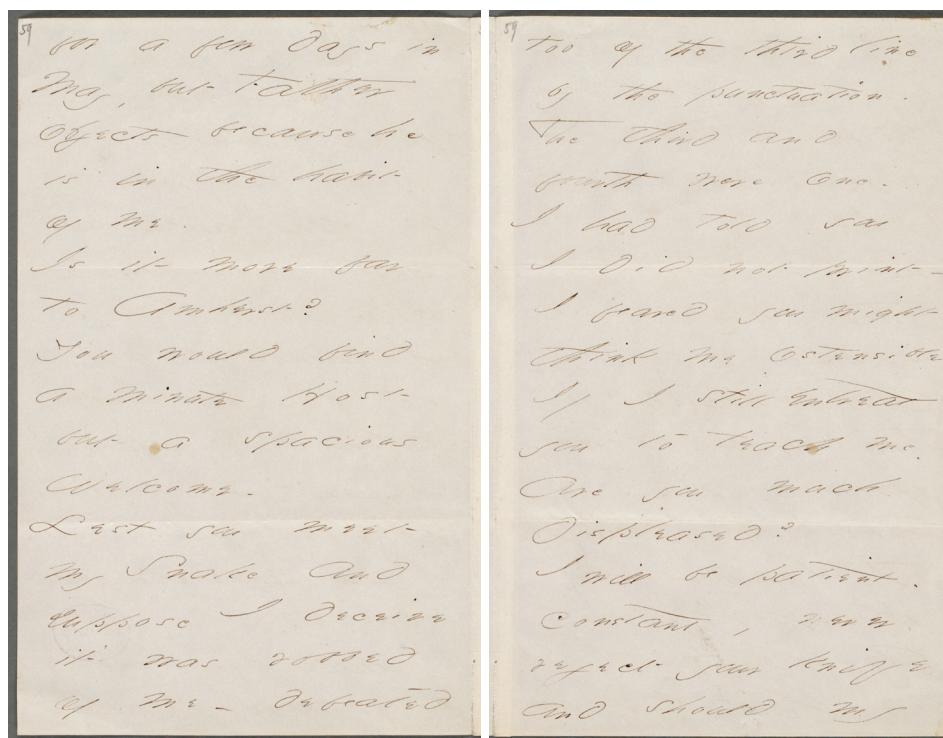 59
for a few days in
May, but Father
objects because he
is in the habit
of me.
Is it more far
to Amherst?
You would find
a minute Host
but a spacious
Welcome.
Lest you meet
my Snake and
suppose I deceive
it was robbed
of me - defeated
59
too of the third line
by the punctuation.
The third and
fourth were one.
I had told you
I did not print -
I feared you might
think me ostensible
If I still entreat
you to teach me.
Are you much
displeased?
I will be patient.
constant, never
reject your knife
and should my